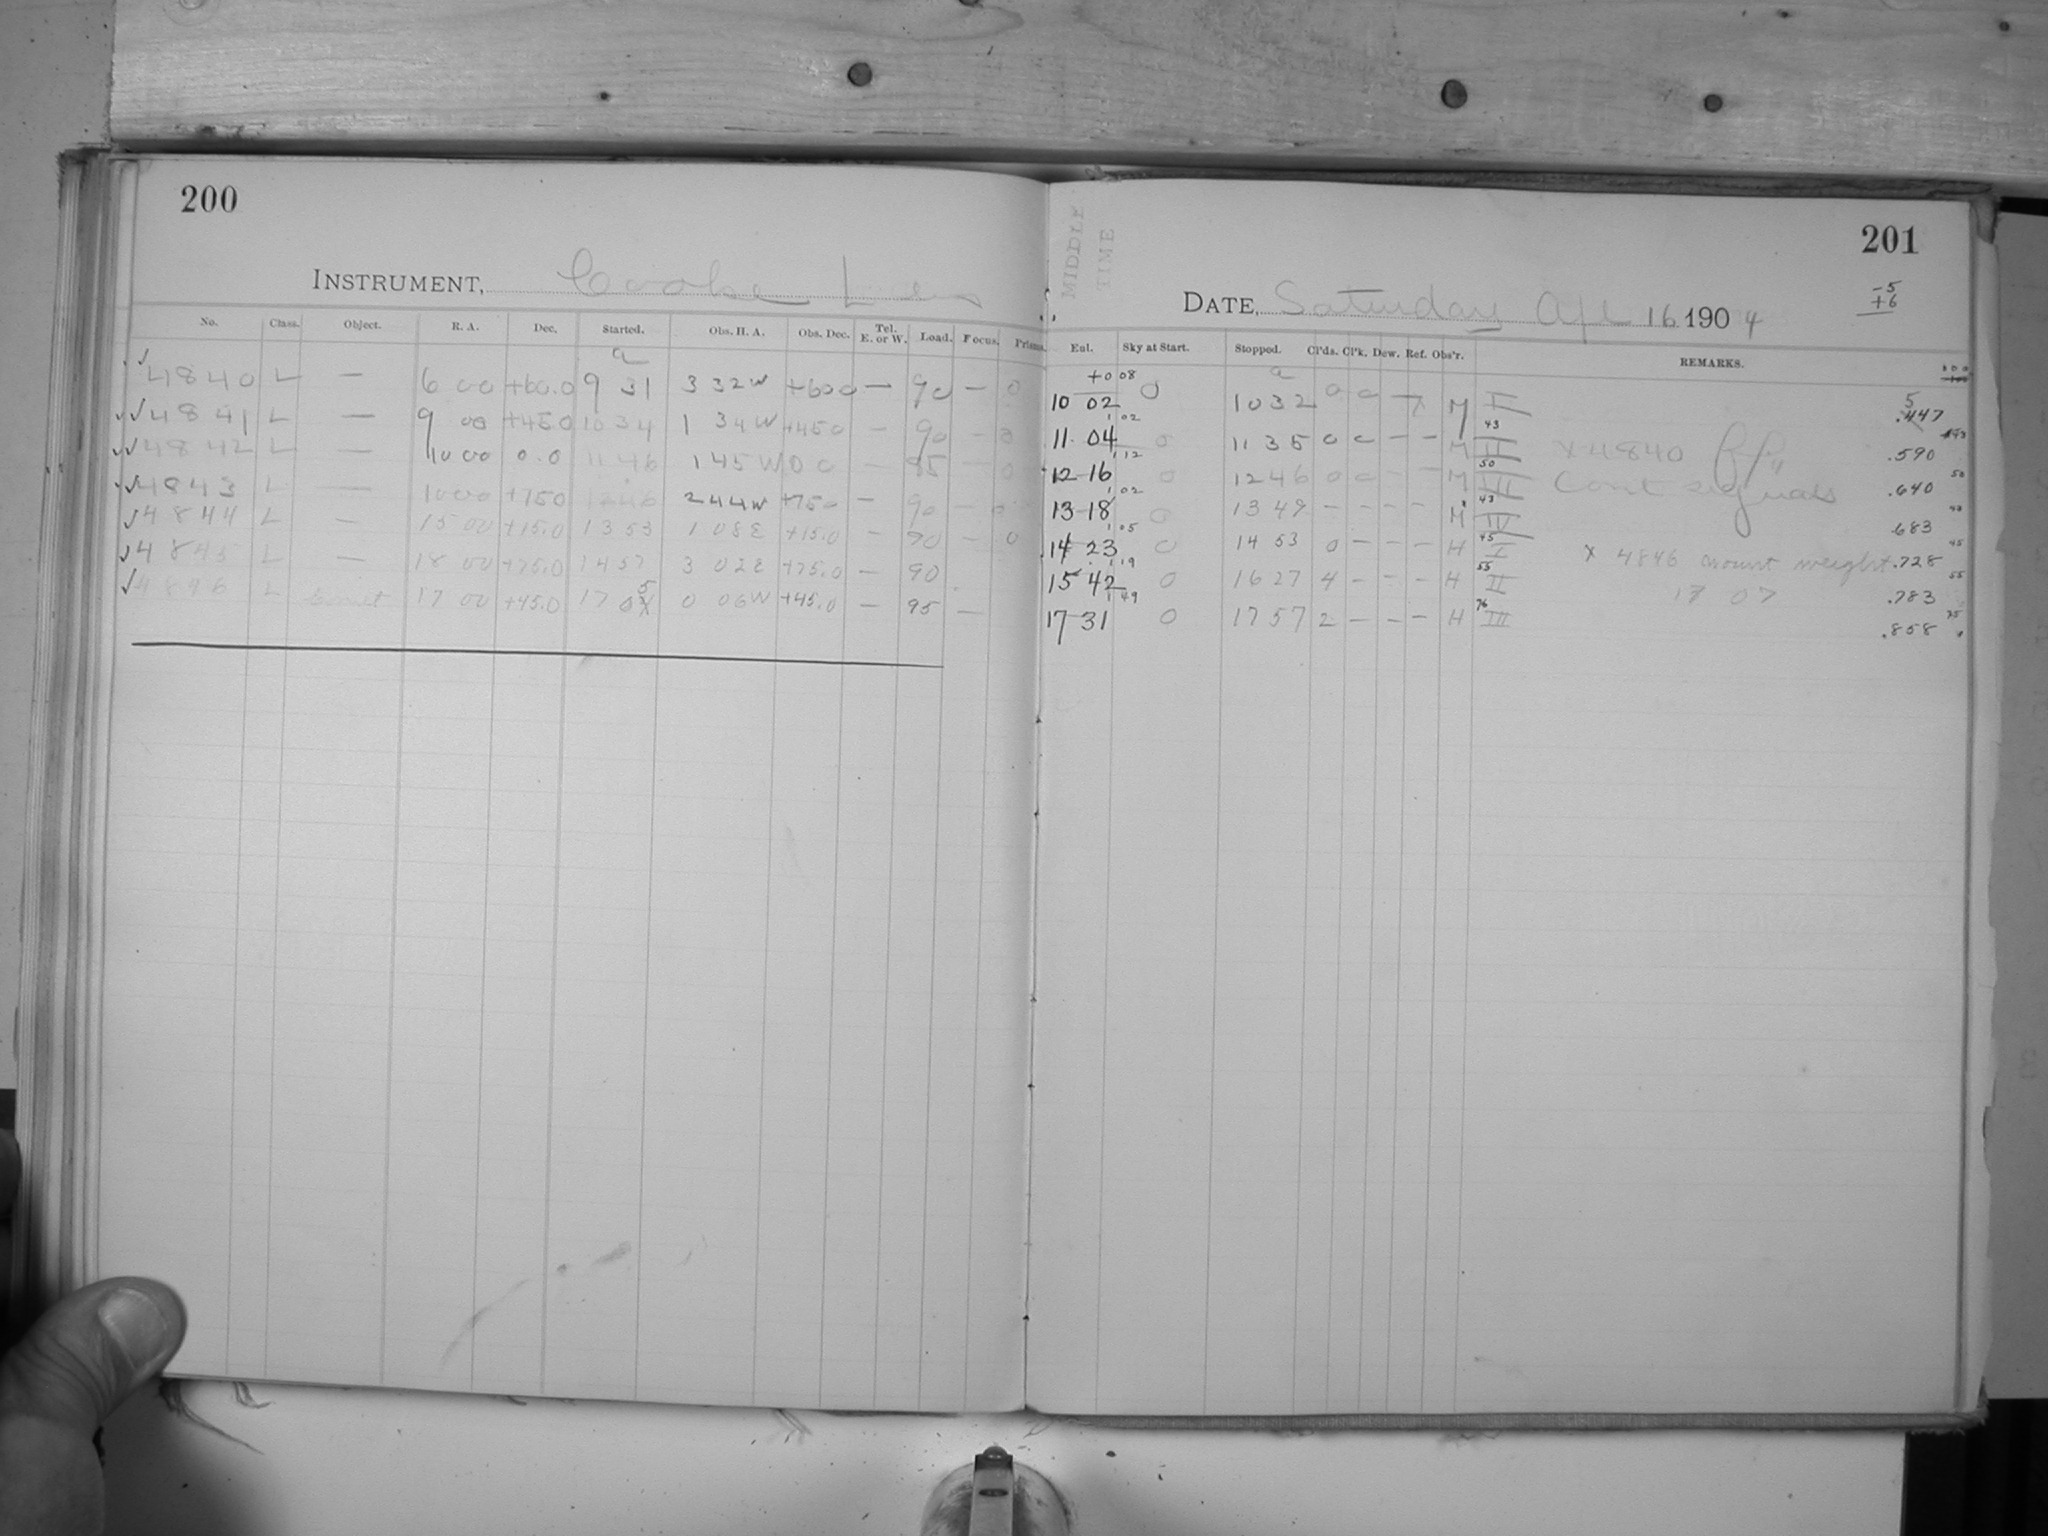 200
INSTRUMENT, Cooke Lens
No. Class. Object. R. A. Dec. Started. Obs. H. A. Obs. Dec. Tel. E. or W. Load. Focus. Prisms.
a
✓ ✓ 4840 L — 6 00 +60.0 9 31 3 32 W +60 0 — 90 — 0
✓✓ 4841 L — 9 00 +45.0 10 34 1 34 W +45 0 — 90 — 0
✓✓ 4842 L — 10 00 0.0 11 46 1 45 W 0 0 — 85 — 0
✓✓ 4843 L — 10 00 +75 0 12 46 2 44 W +75 0 — 90 — 0
✓ 4844 L — 15 00 +15.0 13 53 1 08 E +15.0 — 90 — 0
✓ 4845 L — 18 00 +75.0 14 57 3 02 E +75.0 — 90
✓ 4846 L 17 00 +45.0 17 05 0 06 W +45.0 — 95 —
MIDDLE TIME
201
DATE, Saturday Apr 16 1904
-5
+6
Exl. Sky at Start. Stopped. Cl'ds. Cl'k. Dew. Ref. Obs'r. REMARKS.
+0 08 a
10 02 0 10 32 0 0 — M I 5 .447
1 02 43
11 04 0 11 35 0 0 — — M II x 4840 .590
1 12 50 50
12 16 0 12 46 0 0 — — M III Cont signals .640
1 02 43 43
13 18 0 13 49 — — — — M IV .683
1 05 45 45
14 23 0 14 53 0 — — — H I x 4846 mount weight .728
1 19 55 55
15 42 0 16 27 4 — — — H II 17 07 .783
1 49 76 75
17 31 0 17 57 2 — — — H III .858